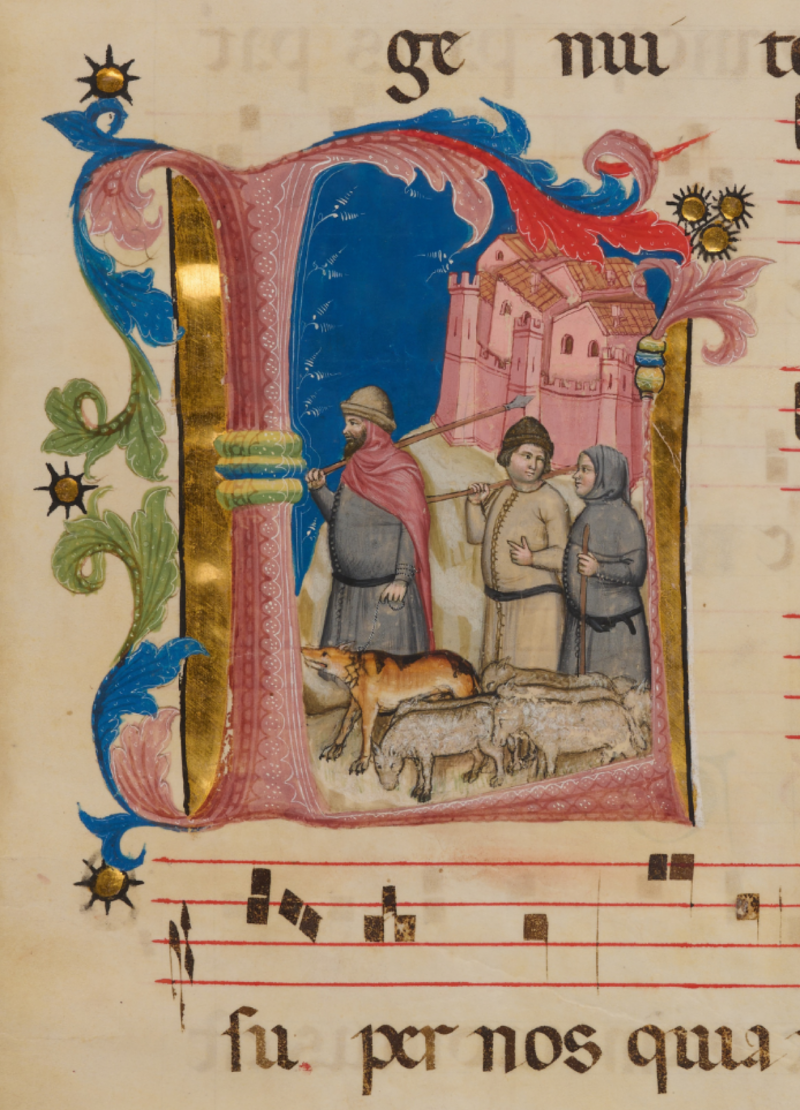 ge nui te
L
su per nos quia